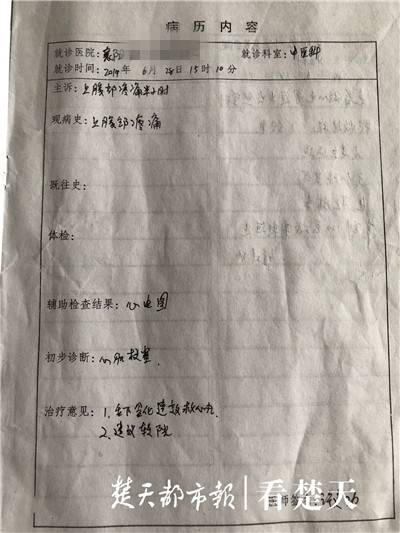 病历内容
就诊医院：襄阳
就诊科室：中医科
就诊时间：2019年 6月 28日 15时 10分
主诉：上腹部疼痛半小时
现病史：上腹部疼痛
既往史：
体检：
辅助检查结果：心电图
初步诊断：心肌梗塞
治疗意见：1. 舌下含化速效救心丸
2. 建议转院
楚天都市報 | 看楚天
医师签名：